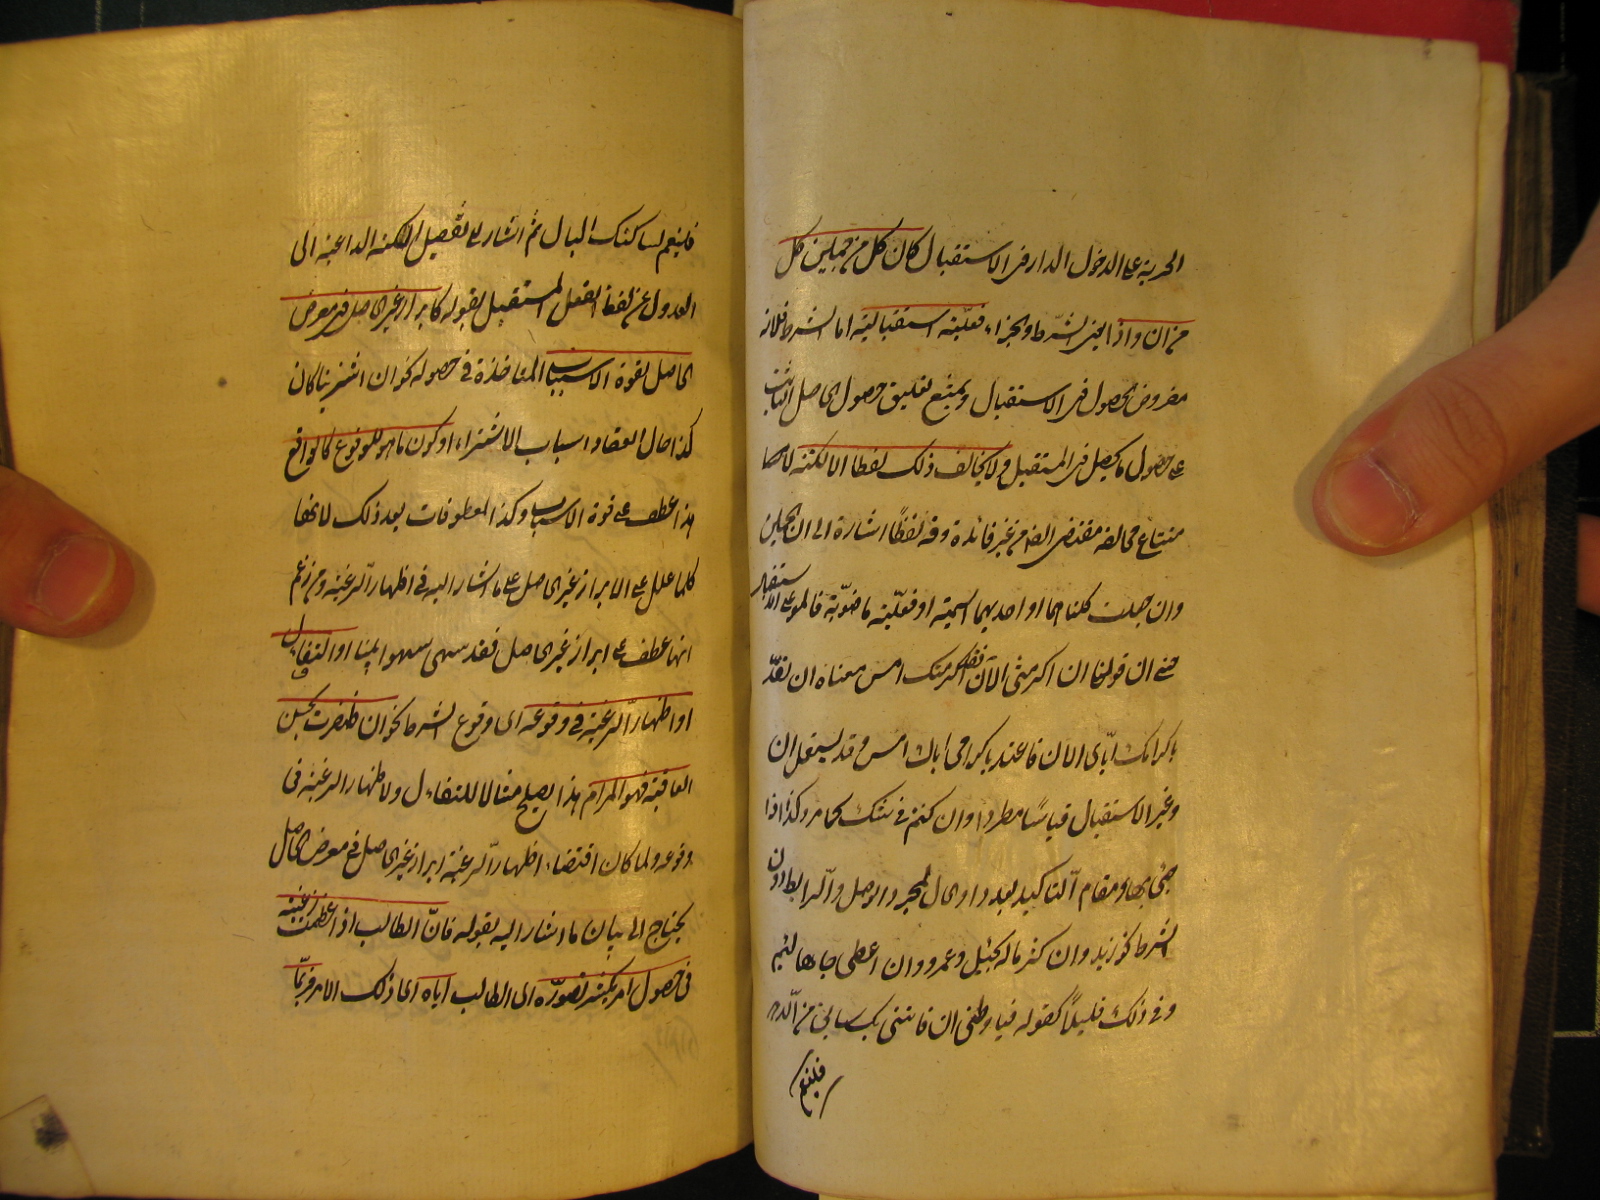 الحرية على الدخول الدار فى الاستقبال كان كل من جملتين كل
من ان واذا يعنى الشرط والجزاء فعلية استقبالية اما الشرط فلانه
مفروض الحصول فى الاستقبال ويمتنع تعليق حصول الحاصل الثابت
على حصول ما يحصل فى المستقبل ولا يخالف ذلك لفظا الا لنكتة لا
متناع مخالفة مقتضى الظ من غير فائدة وقه لفظًا اشارة الى ان الجملتين
وان جعلت كلتاهما او احديهما اسمية او فعلية ماضوية فالمعنى على الاستقبال
حتى ان قولنا ان اكرمتنى الآن فقد اكرمتك امس معناه ان تعتد
باكرامك اياى الآن فاعتد باكرامى اياك امس وقد يستعمل ان
وغير الاستقبال قياسًا مطردا وان كنتم فى شك كما مر وكذا اذا
جئ بها فى مقام التاكيد بعد واو الحال لمجرد الوصل والربط دون
الشرط نحو زيد وان كثر ماله بخيل وعمرو وان اعطى جاها لئيم
وفى ذلك قليلاً كقوله فيا وطنى ان فاتنى بك سابق من الدهر
فلينعم
فلينعم لساكنك البال ثم اشار الى تفصيل النكتة الداعية الى
العدول عن لفظ الفعل المستقبل بقوله كابراز غير الحاصل فى معرض
الحاصل لقوة الاسباب المتاخذة فى حصوله نحو ان اشترينا كان
كذا حال انعقاد اسباب الاشتراء او كون ما هو للوقوع كالواقع
هذا عطف على قوة الاسباب وكذا المعطوفات بعد ذلك لانها
كلها علل على الابراز غير الحاصل على ما اشار اليه فى اظهار الرغبة ومن زعم
انها عطف على ابراز غير الحاصل فقد سهى سهوا بينا او التفاؤل
او اظهار الرغبة فى وقوعه اى وقوع الشرط نحو ان ظفرت بحسن
العاقبة فهو المرام هذا يصلح مثالا للتفاءل ولاظهار الرغبة فى
وقوعه ولما كان اقتضاء اظهار الرغبة ابراز غير الحاصل فى معرض الحاصل
يحتاج الى بيان ما اشار اليه بقوله فانّ الطالب اذا عظمت رغبته
فى حصول امر يكثر تصوّره اى الطالب اياه اى ذلك الامر فربّما